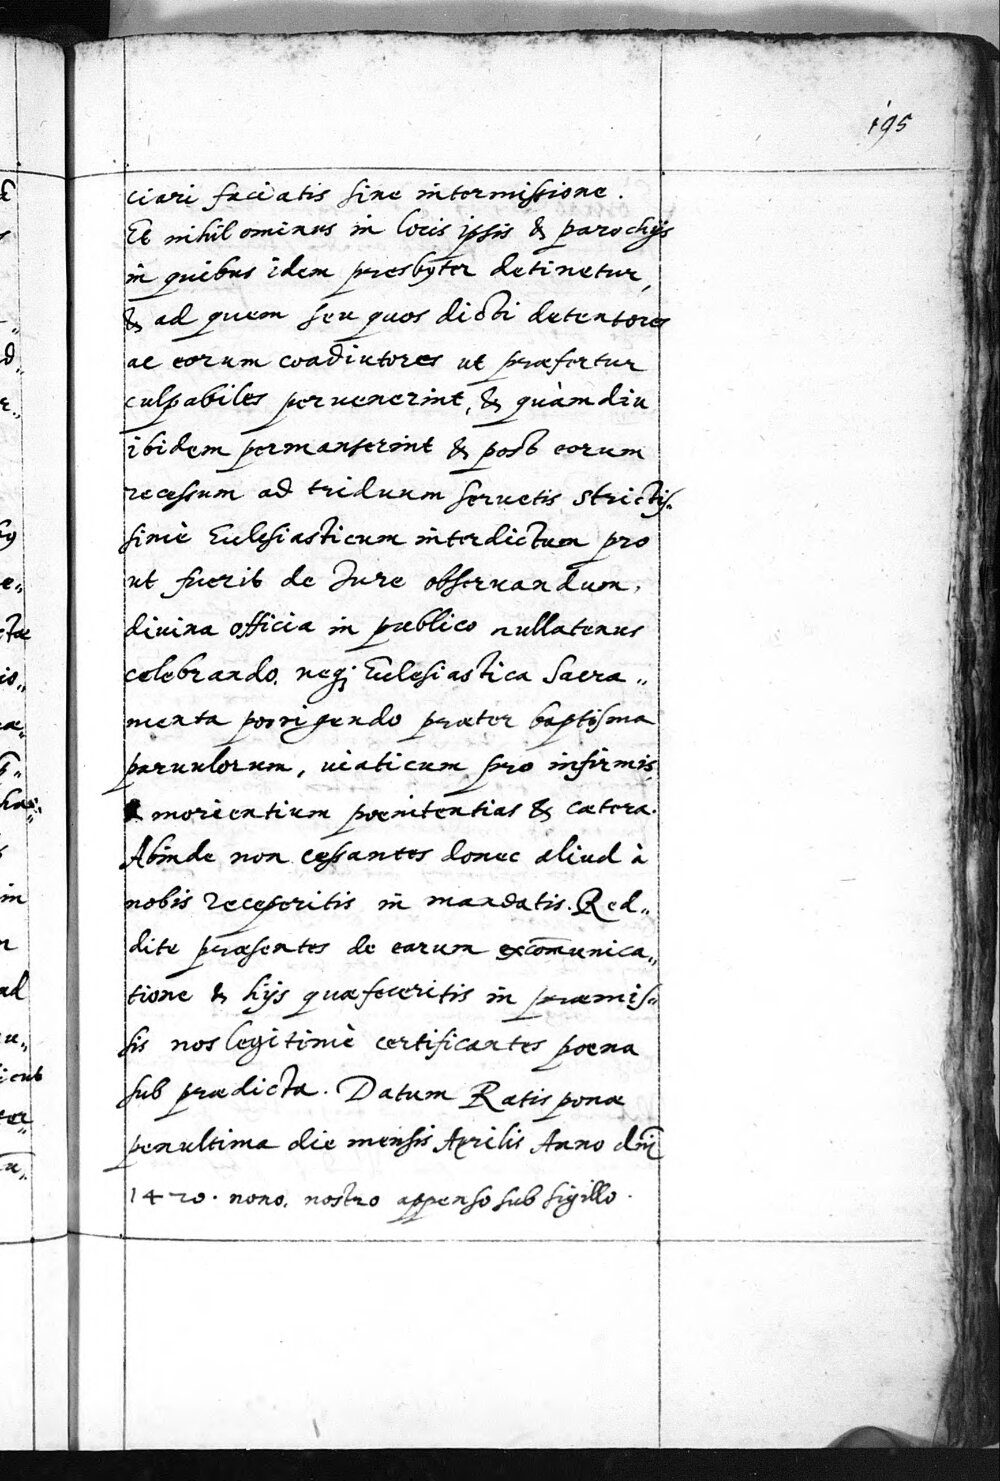 195
ciari faciatis sine intermissione.
Et nihil ominus in locis ipsis & parochijs
in quibus idem presbyter detinetur,
& ad quem seu quos dicti detentores
ac eorum coadiutores ut præfertur
culpabiles peruenerint, & quàmdiu
ibidem permanserint & post eorum
recessum ad triduum seruetis strictis„
simè Ecclesiasticum interdictum pro
ut fuerit de Jure obseruandum,
diuina officia in publico nullatenus
celebrando, neq; Ecclesiastica Sacra„
menta porrigendo præter baptisma
paruulorum, uiaticum pro infirmis,
& morientium poenitentias & cætera.
Abinde non cessantes donec aliud à
nobis receperitis in mandatis. Red„
dite præsentes de earum excom̄unica„
tione & hijs quæ feceritis in præmis„
sis nos legitimè certificantes poena
sub prædicta. Datum Ratisponæ
penultima die mensis Aprilis Anno dn̄i
1420. nono. nostro appenso sub sigillo.